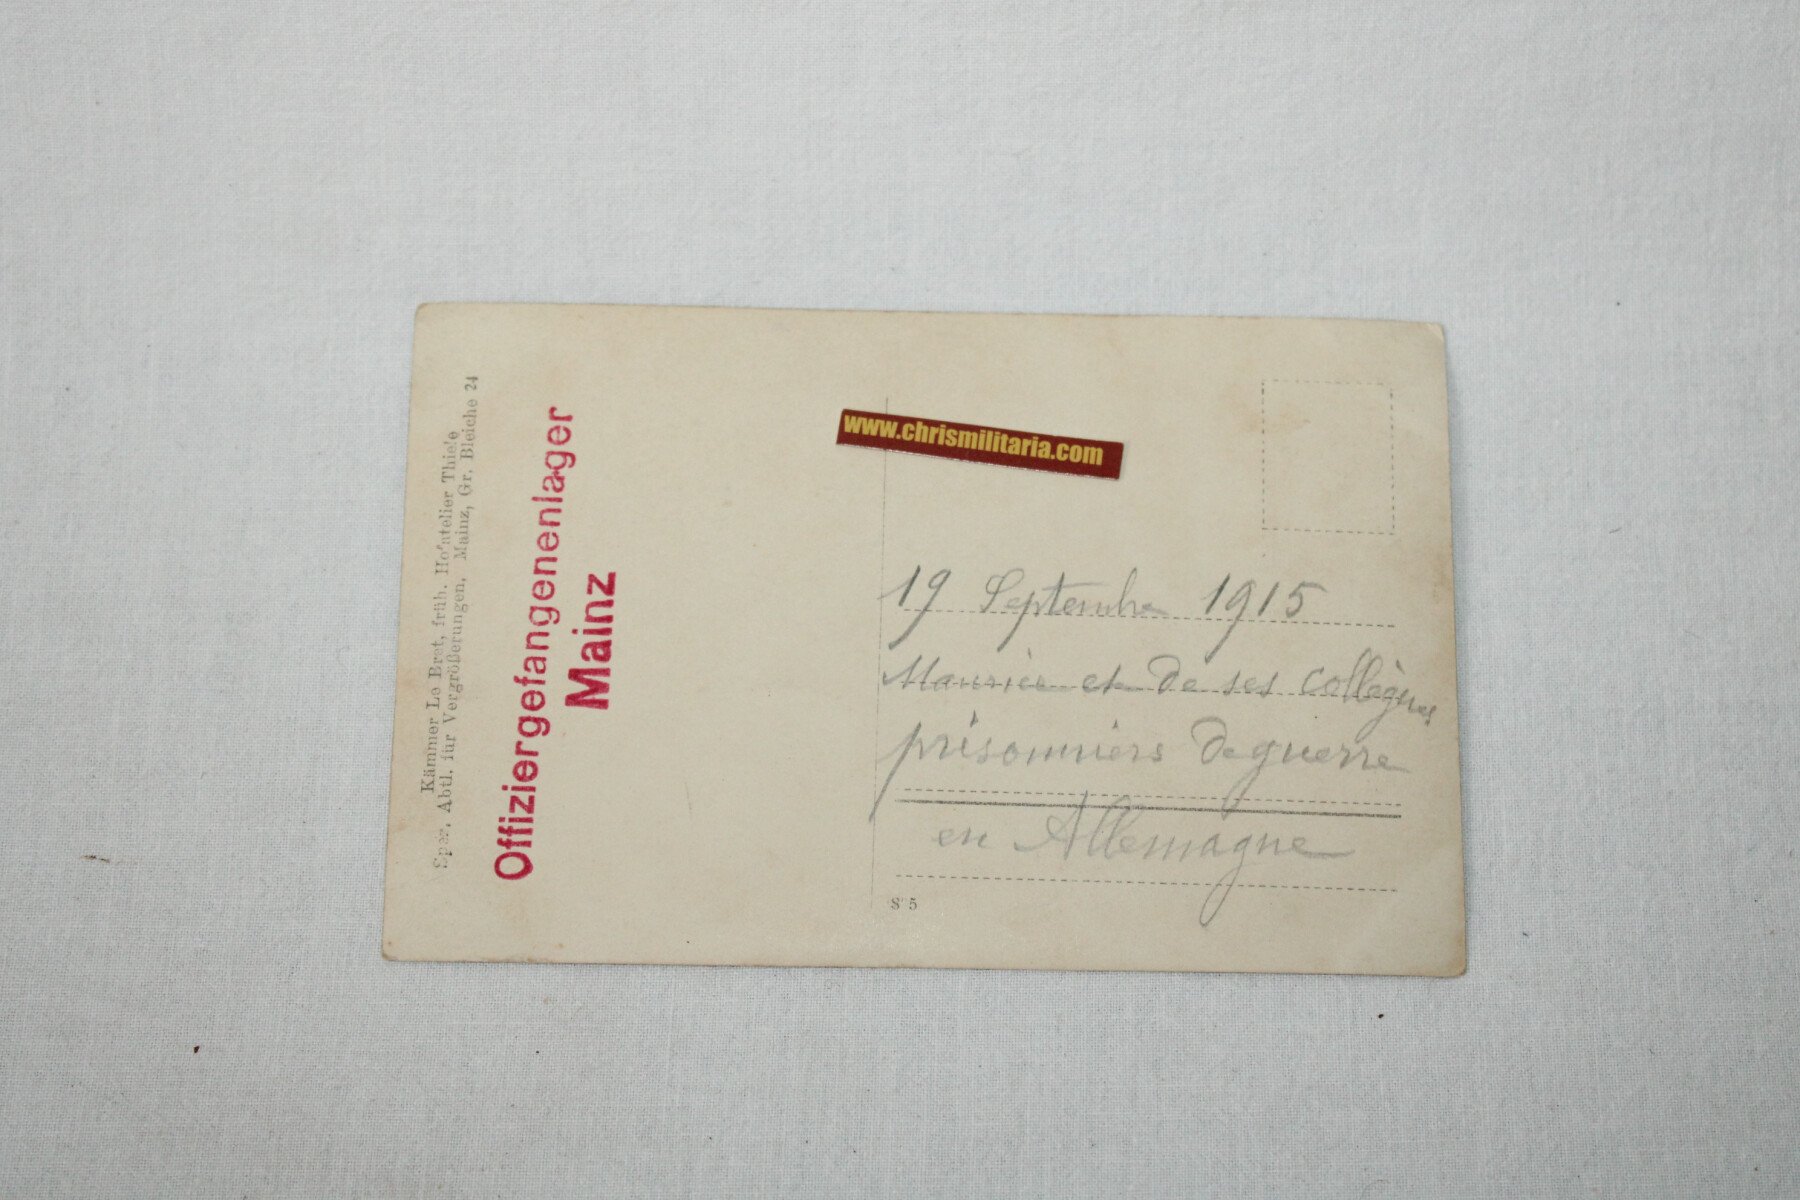 Kämmer Le Bret, früh. Hofatelier Thiele
Spez. Abtl. für Vergrößerungen. Mainz, Gr. Bleiche 24
Offiziergefangenenlager
Mainz
www.chrismilitaria.com
19 Septembre 1915
et de ses collègues
prisonniers de guerre
en Allemagne
S 5